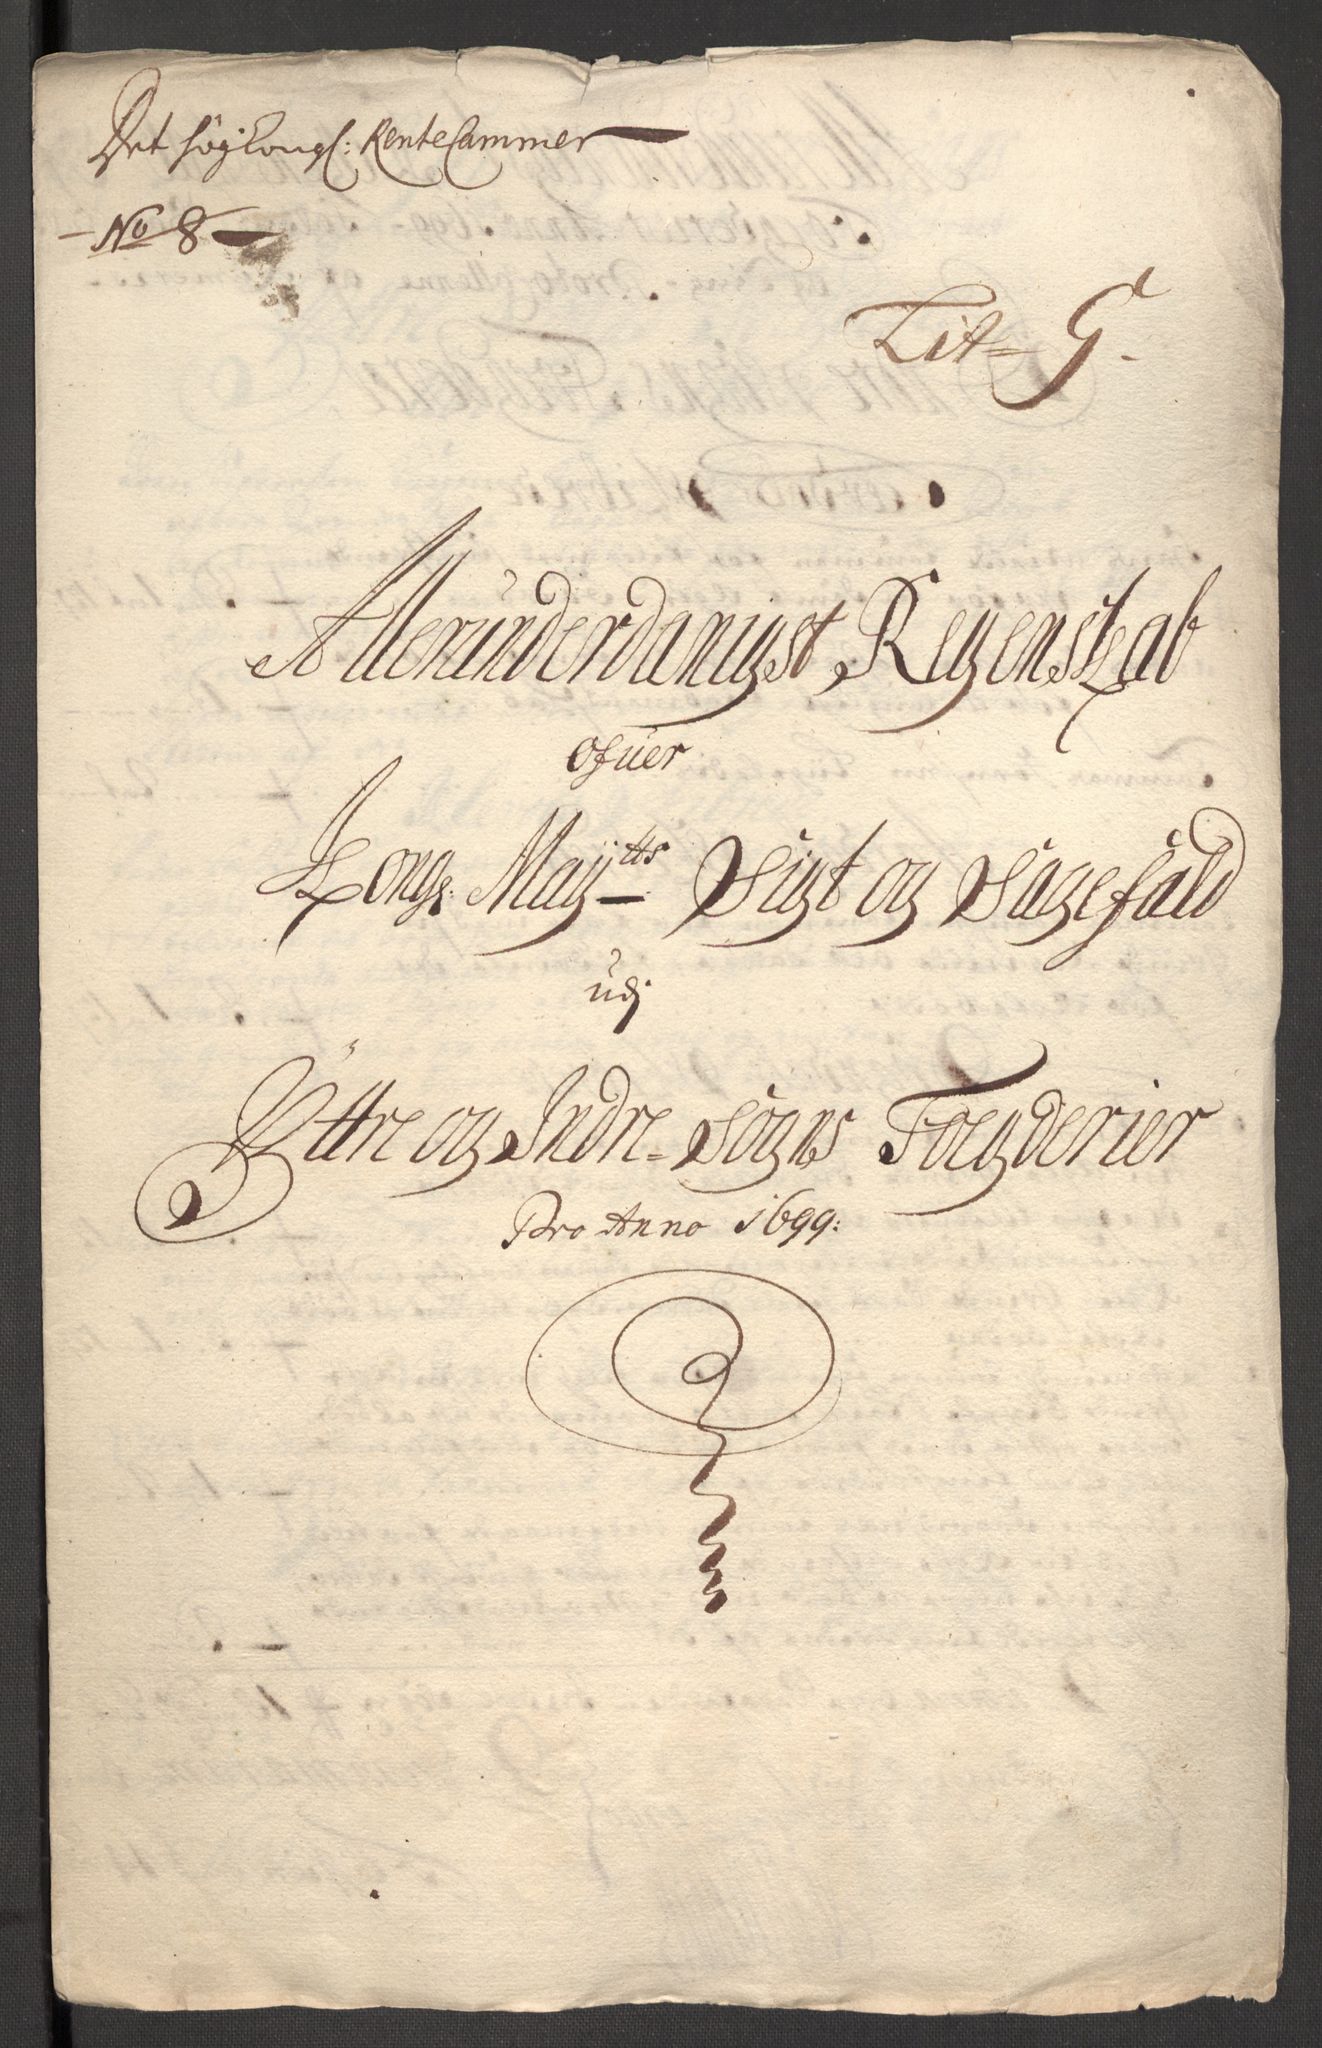 Det høyKongl: RenteCammer
No 8
Lit= G.
Allerunderdanigst Regenskab
ofuer
Kongl: Maytts Sigt og Sagefald
udj
Yttre og Indre= Sogns Foegderier
Pro Anno 1699: